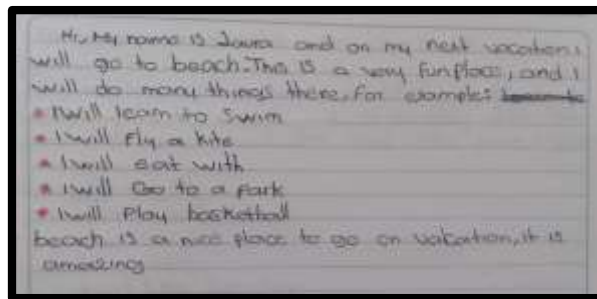 Hi, My name is Laura and on my next vacation i
will go to beach. This is a very fun place, and I
will do many things there, for example:
• I will learn to swim
• I will Fly a kite
• I will eat with
• I will Go to a park
• I will Play basketball
beach is a nice place to go on vakation, it is
amazing